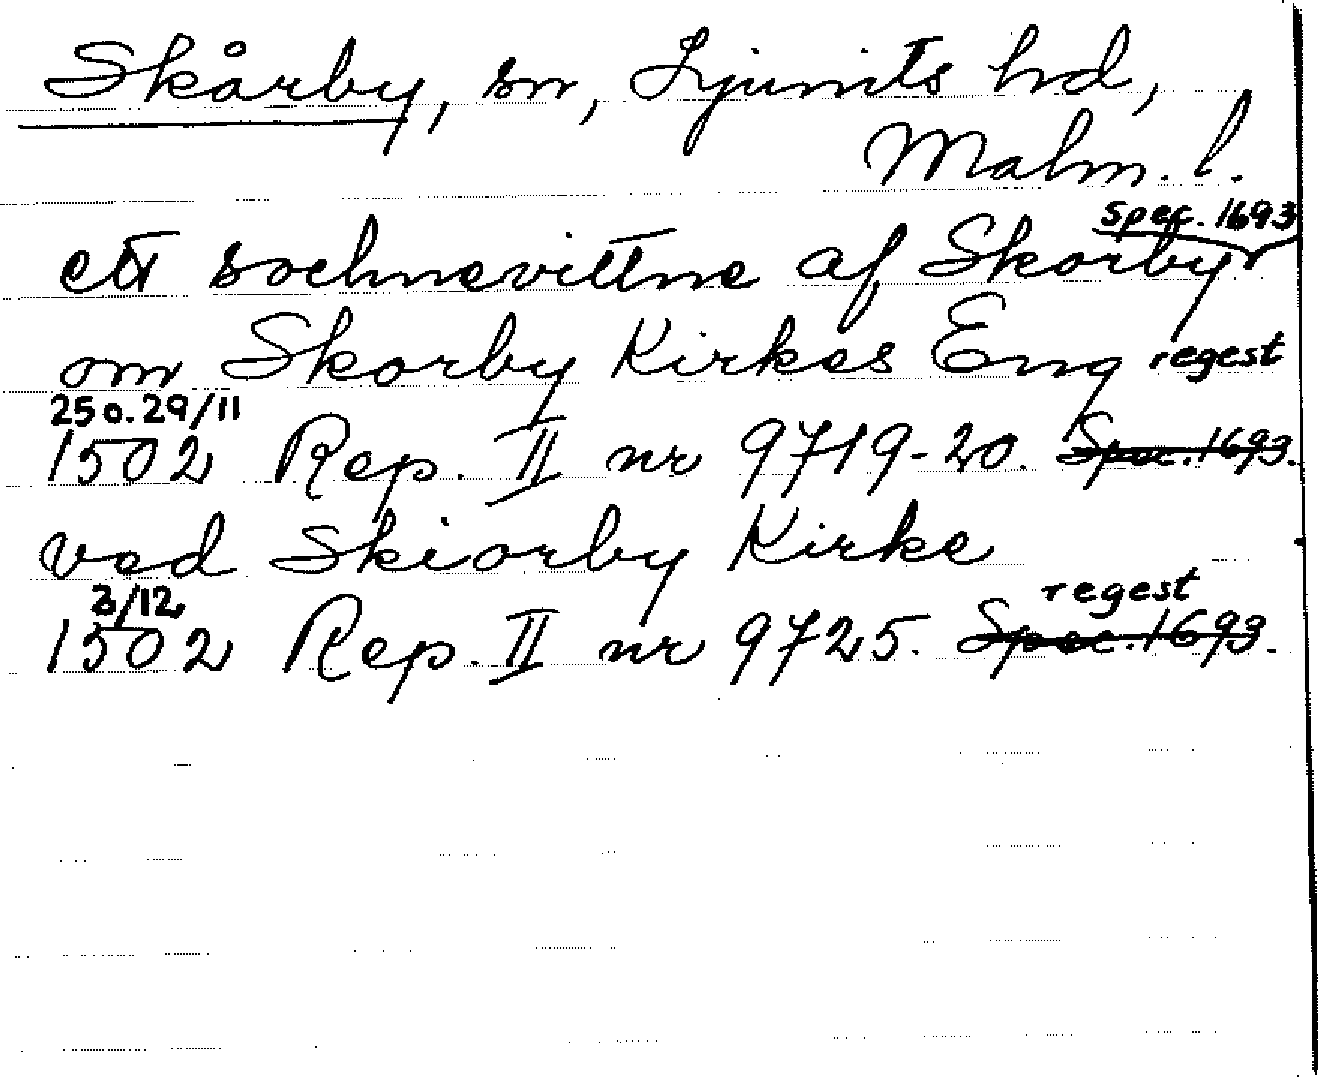 Skårby, sn, Ljunits hd,
Malm. l.
spec. 1693
ett sochnevittne af Skorby
om Skorby Kirkes Eng regest
25 o. 29/11
1502 Rep. II nr 9719-20. Spec. 1693.
ved Skiorby Kirke
3/12 regest
1502 Rep. II nr 9725. Spec. 1693.